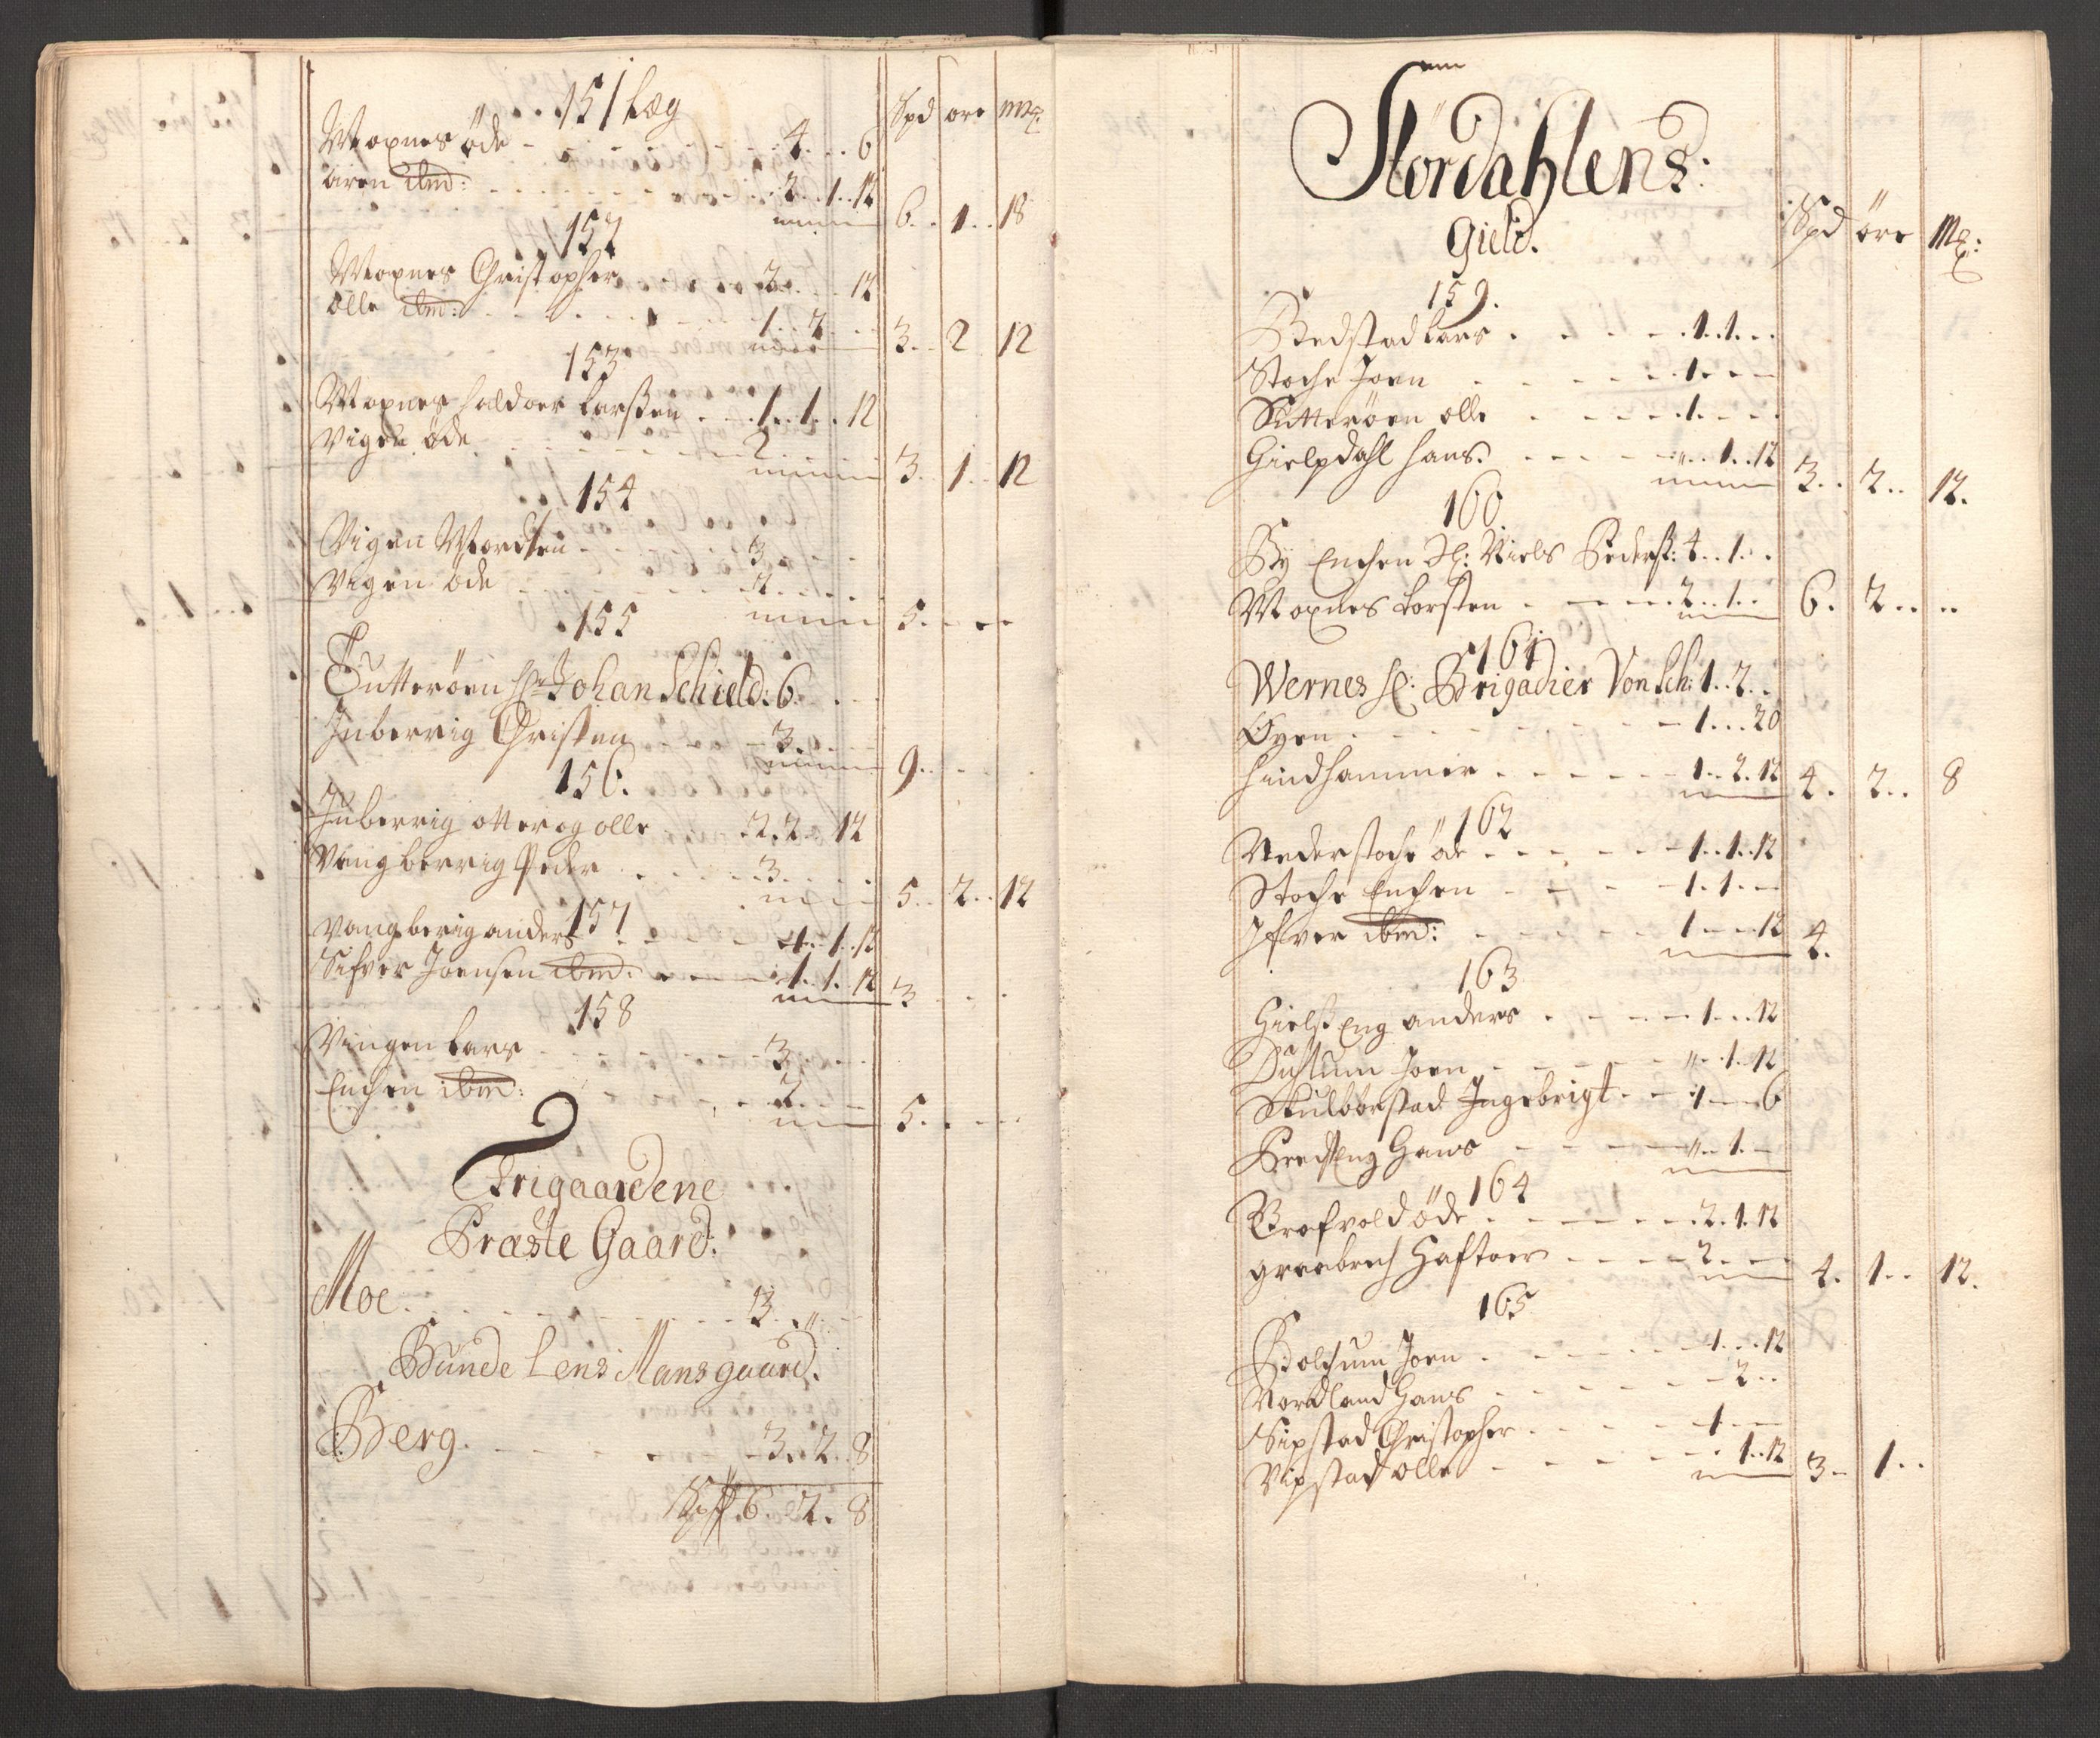 151 Læg
Spd ore Mk:
Moxnes öde - 4 .. 6
Aren ibm: 2 .. 1 .. 12
6 .. 1 .. 18
152
Moxnes Christopher 2 .. 12
Olle ibm: 1 .. 2
3 .. 2 12
153
Moxnes Haldoer Larssen 1 .. 1 .. 12
Vigen öde 2
3 .. 1 .. 12
154
Vigen Mordten 3
Vigen öde 2
5
155
Tutteröen Hr Johan Schield: 6
Juberrig Christen 3
9
156:
Juberrig otter og olle 2 . 2 .. 12
Vangberrig Peder 3
5 .. 2 .. 12
157
Vangberig anders 1 .. 1 .. 12
Sifver Joensen ibm: 1 . 1 . 12
3
158
Vingen Lars 3
Enchen ibm: 2
5
Frigaardene
Præste Gaard:
Moe 3
Bunde Lens Mans gaard.
Berg 3 .. 2 .. 8
Spd 6 .. 2 . 8
Stördahlens:
Gield.
Spd öre Mk:
159.
Bedstad Lars 1 .. 1
Stoche Joen 1
Sutteröen olle 1
Gielpdahl Hans 1 .. 12
3 .. 2 .. 12.
160
By Enchen Sl: Niels Peders: 4 .. 1
Moxnes Torsten 2 .. 1
6 . 2 .. ..
161
Wernes Hl: Brigadier Von Sch: 1 .. 2
Öyen 1 ... 20
Hindhammer 1 .. 2 . 12
4 . 2 .. 8
162
Nederstoche öde 1 .. 1 . 12
Stoche Enchen 1 . 1
Ifver ibm: 1 -- 12
4.
163
Hielseng anders 1 .. 12
Dühlum Joen " .. 1 . 12
Skulbörstad Ingebrigt 1 -- 6
Hans " .. 1
164
Prafvold öde 2 . 1 . 12
grenbech Haftoer 2
4 . 1 .. 12.
165
Holchum Joen 1 .. 12
Nordland Hans 2
Sipstad Christopher 1
Vipstad olle 1 .. 12
3 - 1 ..